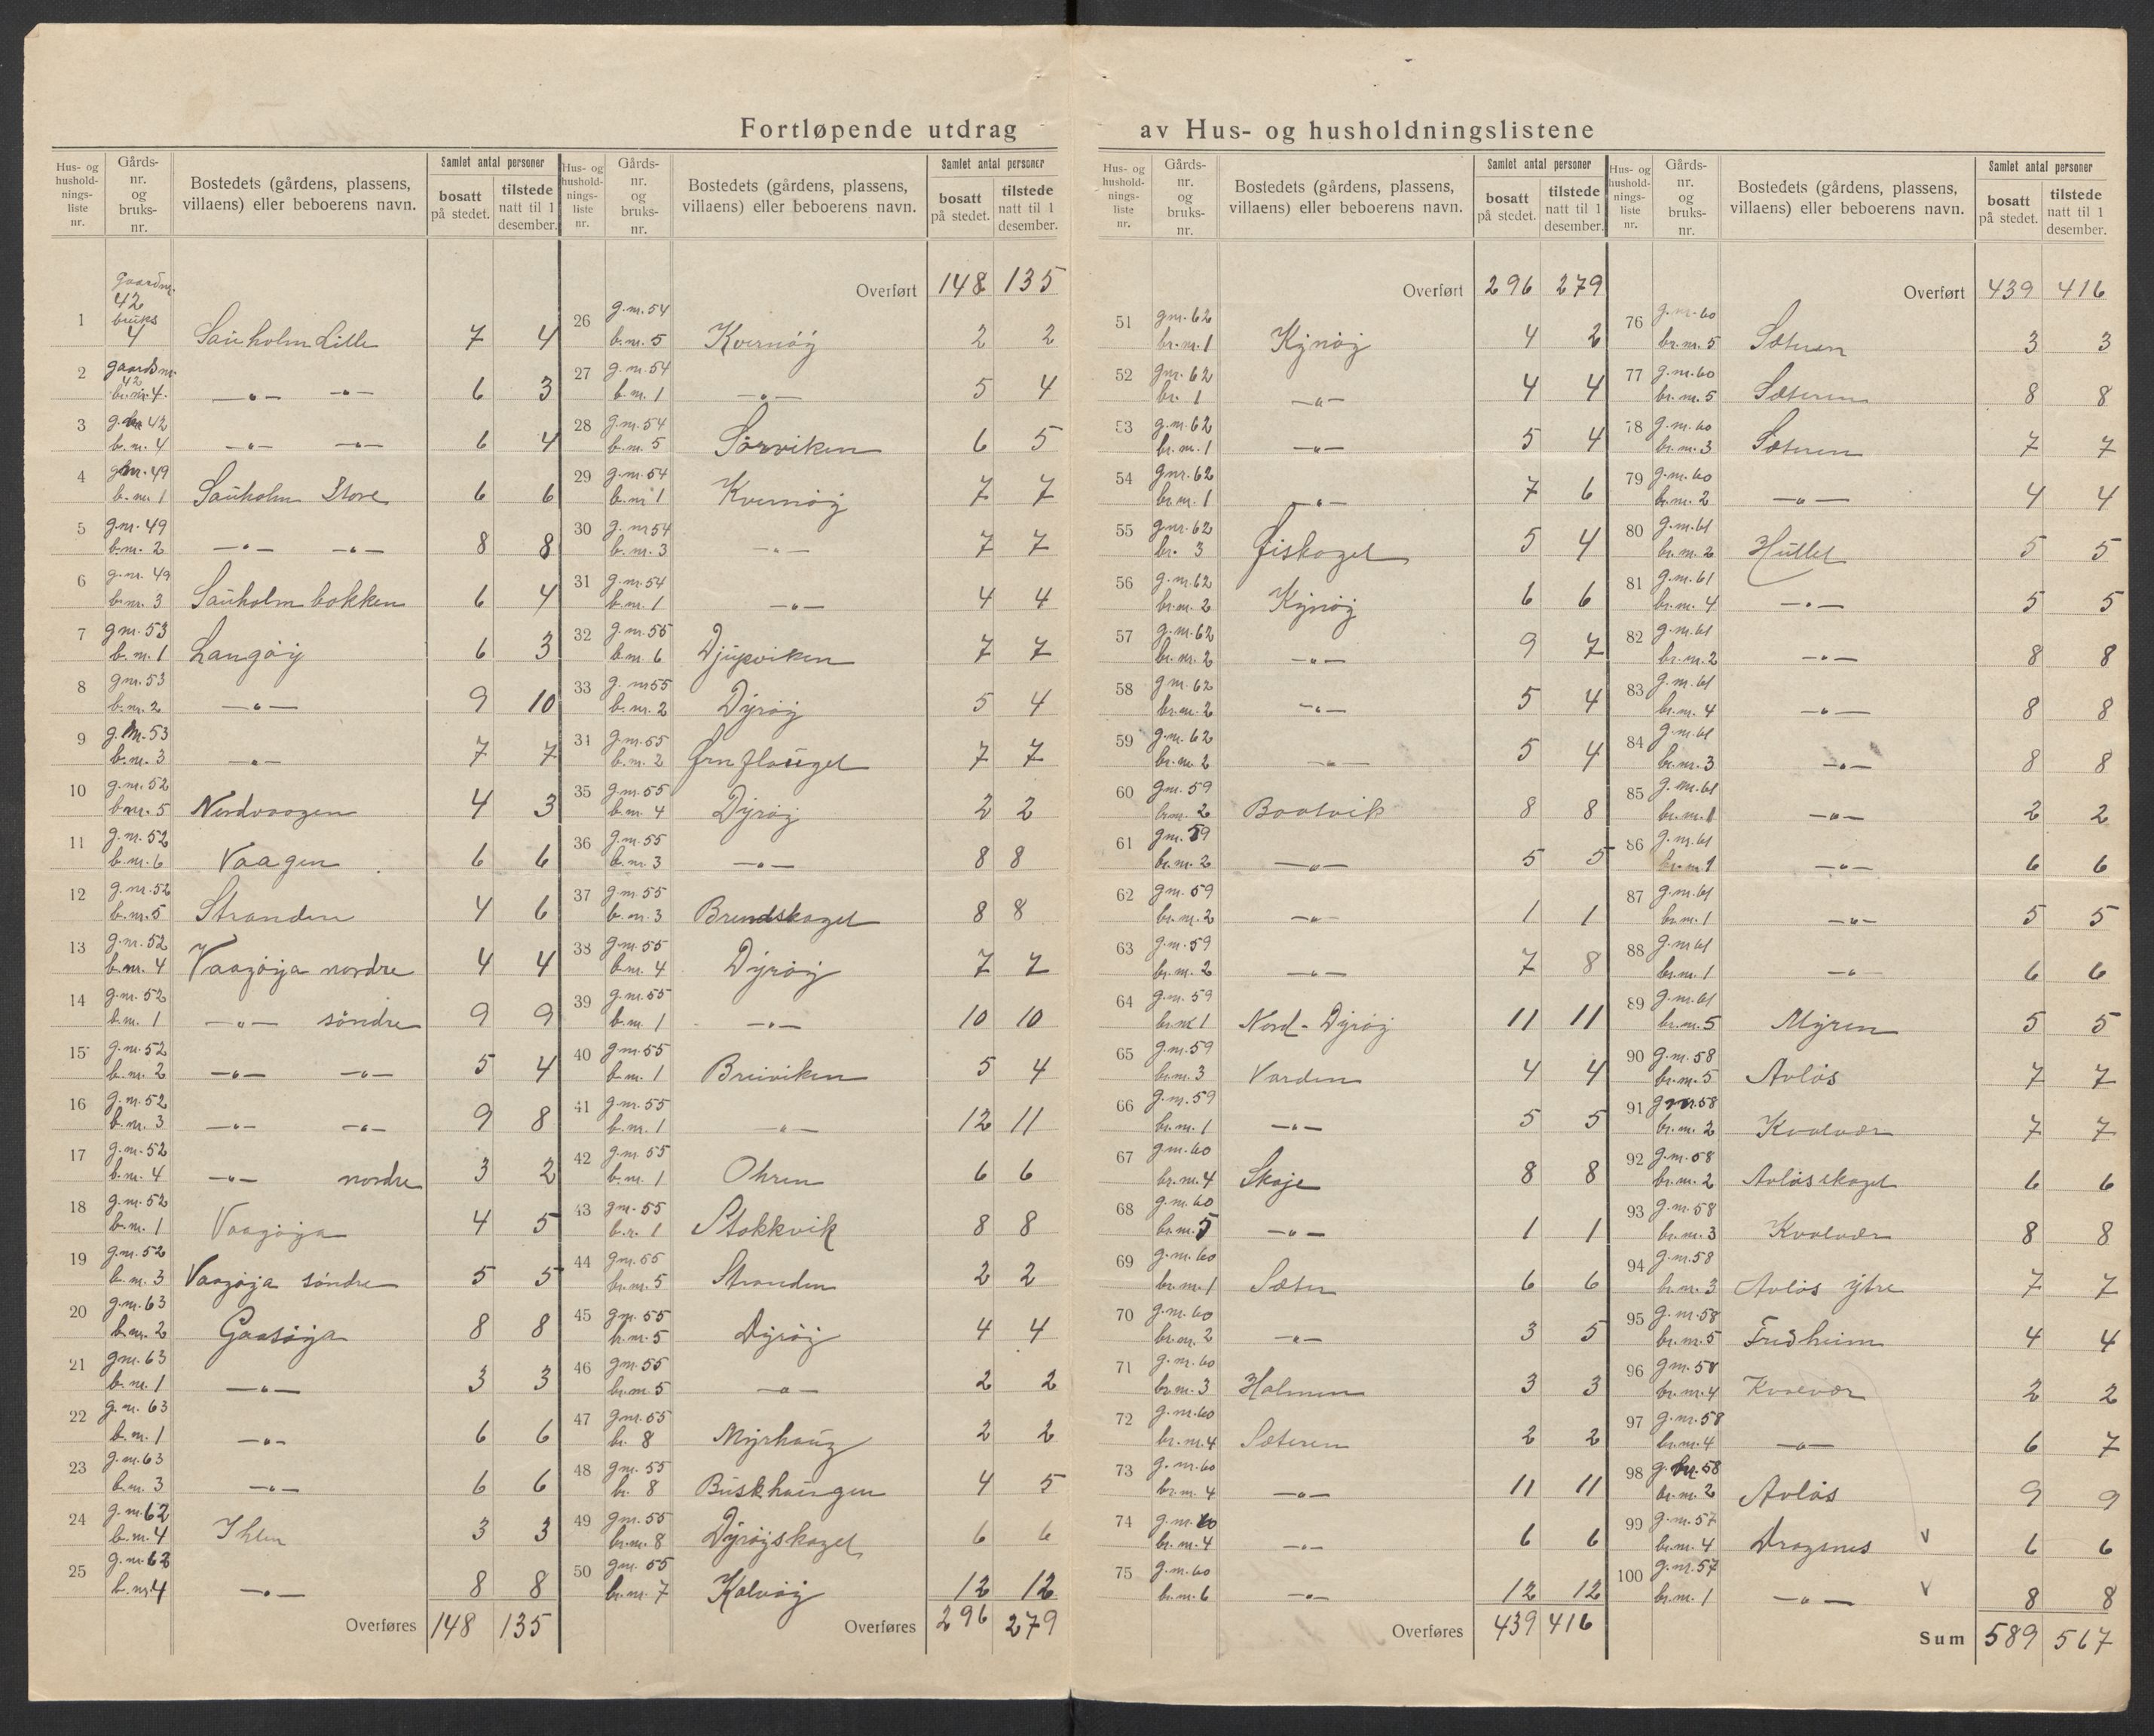 Fortløpende utdrag av Hus- og husholdningslistene
Hus- og husholdnings-liste nr. | Gårds-nr. og bruks-nr. | Bostedets (gårdens, plassens, villaens) eller beboerens navn. | Samlet antal personer bosatt på stedet. | tilstede natt til 1 desember.
1 gaardnr. 42 bruks 4 Sauholm Lille 7 4
2 gaardsnr. 42 br.nr. 4. —„— —„— 6 3
3 g.nr. 42 b.nr. 4 —„— —„— 6 4
4 gnr. 49 b.nr. 1 Sauholm Store 6 6
5 g.nr. 49 b.nr. 2 —„— —„— 8 8
6 g.nr. 49 b.nr. 3 Sauholm bakken 6 4
7 gnr. 53 b.nr. 1 Langöy 6 3
8 gnr. 53 b.nr. 2 —„— 9 10
9 g.nr. 53 b.nr. 3 —„— 7 7
10 g.nr. 52 b.nr. 5 Nordvaagen 4 3
11 g.nr. 52 b.nr. 6 Vaagen 6 6
12 g.nr. 52 b.nr. 5 Stranden 4 6
13 g.nr. 52 b.nr. 4 Vaagöya nordre 4 4
14 g.nr. 52 b.nr. 1 —„— söndre 9 9
15 g.nr. 52 b.nr. 2 —„— —„— 5 4
16 g.nr. 52 b.nr. 3 —„— —„— 9 8
17 g.nr. 52 b.nr. 4 —„— nordre 3 2
18 g.nr. 52 b.nr. 1 Vaagöya 4 5
19 g.nr. 52 b.nr. 3 Vaagöya söndre 5 5
20 g.nr. 63 b.nr. 2 Gaasöya 8 8
21 gnr. 63 b.nr. 1 —„— 3 3
22 g.nr. 63 b.nr. 1 —„— 6 6
23 g.nr. 63 b.nr. 3 —„— 6 6
24 g.nr. 62 b.nr. 4 Ihlen 3 3
25 g.nr. 62 b.nr 4 —„— 8 8
Overføres 148 135
Hus- og husholdnings-liste nr. | Gårds-nr. og bruks-nr. | Bostedets (gårdens, plassens, villaens) eller beboerens navn. | Samlet antal personer bosatt på stedet. | tilstede natt til 1 desember.
Overført 148 135
26 g.nr. 54 b.nr. 5 Kvernöy 2 2
27 g.nr. 54 b.nr. 1 —„— 5 4
28 g.nr. 54 b.nr. 5 Sörviken 6 5
29 g.nr. 54 b.nr 1 Kvernöy 7 7
30 g.nr 54 b.nr. 3 —„— 7 7
31 g.nr. 54 b.nr. 1 —„— 4 4
32 g.nr. 55 b.nr. 6 Djupviken 7 7
33 g.nr 55 b.nr. 2 Dyröy 5 4
34 g.nr. 55 b.nr. 2 Örnflauget 7 7
35 g.nr. 55 b.nr. 4 Dyröy 2 2
36 g.nr. 55 b.nr. 3 —„— 8 8
37 g.nr. 55 b.nr. 3 Brendskaget 8 8
38 g.nr. 55 b.nr. 4 Dyröy 7 7
39 g.nr. 55 b.nr. 1 —„— 10 10
40 g.nr. 55 b.nr. 1 Breiviken 5 4
41 g.nr. 55 b.nr. 1 —„— 12 11
42 g.nr 55 b.nr. 1 Ohren 6 6
43 gnr. 55 b.r. 1 Stokkvik 8 8
44 gnr. 55 br.nr. 5 Stranden 2 2
45 gnr. 55 br.nr. 5 Dyröy 4 4
46 gnr. 55 br.nr. 5 —„— 2 2
47 gnr. 55 br. 8 Myrhaug 2 2
48 gnr. 55 br. 8 Buskhaugen 4 5
49 gnr. 55 br.nr. 8 Dyröyskaget 6 6
50 gnr. 55 br.nr. 7 Kalvöy 12 12
Overføres 296 279
Hus- og husholdnings-liste nr. | Gårds-nr. og bruks-nr. | Bostedets (gårdens, plassens, villaens) eller beboerens navn. | Samlet antal personer bosatt på stedet. | tilstede natt til 1 desember.
Overført 296 279
51 gnr. 62 br.nr. 1 Kynöy 4 2
52 gnr. 62 br. 1 —„— 4 4
53 g.nr. 62 br.nr. 1 —„— 5 4
54 gnr. 62 br.nr. 1 —„— 7 6
55 gnr. 62 br. 3 Öiskaget 5 4
56 g.nr. 62 br.nr. 2 Kynöy 6 6
57 g.nr. 62 br.nr. 2 —„— 9 7
58 g nr. 62 br.nr. 2 —„— 5 4
59 g.nr. 62 br.nr. 2 —„— 5 4
60 gnr. 59 br.nr. 2 Baatvik 8 8
61 gnr. 59 br.nr. 2 —„— 5 5
62 gnr. 59 br.nr. 2 —„— 1 1
63 g.nr. 59 br.nr. 2 —„— 7 8
64 g.nr. 59 br.nr 1 Nord-Dyröy 11 11
65 g.nr. 59 br.nr. 3 Varden 4 4
66 g.nr. 59 br.nr. 1 —„— 5 5
67 gnr. 60 br.nr. 4 Skaje 8 8
68 g.nr. 60 br.nr. 5 —„— 1 1
69 g.nr. 60 br.nr. 1 Sæter 6 6
70 g.nr. 60 br.nr. 2 —„— 3 5
71 g.nr. 60 br.nr. 3 Holmen 3 3
72 g.nr. 60 br.nr. 4 Sæteren 2 2
73 g.nr. 60 br.nr. 4 —„— 11 11
74 g.nr. 60 br.nr. 4 —„— 6 6
75 g.nr. 60 br.nr. 6 —„— 12 12
Overføres 439 416
Hus- og husholdnings-liste nr. | Gårds-nr. og bruks-nr. | Bostedets (gårdens, plassens, villaens) eller beboerens navn. | Samlet antal personer bosatt på stedet. | tilstede natt til 1 desember.
Overført 439 416
76 g.nr. 60 br.nr. 5 Sæteren 3 3
77 g.nr. 60 br.nr. 5 Sæteren 8 8
78 g.nr. 60 br.nr. 3 Sæteren 7 7
79 g.nr. 60 br.nr. 2 —„— 4 4
80 g.nr. 61 br.nr. 2 Hullet 5 5
81 g.nr. 61 br.nr. 4 —„— 5 5
82 g.nr. 61 br.nr. 2 —„— 8 8
83 g.nr. 61 br.nr. 4 —„— 8 8
84 g.nr. 61 br.nr. 3 —„— 8 8
85 g.nr. 61 br.nr. 1 —„— 2 2
86 g.nr. 61 br.nr 1 —„— 6 6
87 g.nr. 61 br.nr. 1 —„— 5 5
88 g.nr 61 br.nr. 1 —„— 6 6
89 g.nr. 61 br.nr. 5 Myren 5 5
90 g.nr. 58 br.nr. 5 Avlös 7 7
91 gnr. 58 br.nr. 2 Kvalvær 7 7
92 g.nr. 58 br.nr. 2 Avlösskaget 6 6
93 g.nr. 58 br.nr. 3 Kvalvær 8 8
94 g.nr. 58 br.nr. 3 Avlös ytre 7 7
95 g.nr. 58 br.nr. 5 Fredheim 4 4
96 gnr. 58 br.nr. 4 Kvalvær 2 2
97 g.nr. 58 br.nr. 4 —„— 6 7
98 g.nr. 58 br.nr. 2 Avlös 9 9
99 g.nr. 57 br.nr. 4 Dragsnes v 6 6
100 g.nr. 57 br.nr. 1 —„— v 8 8
Sum 589 567